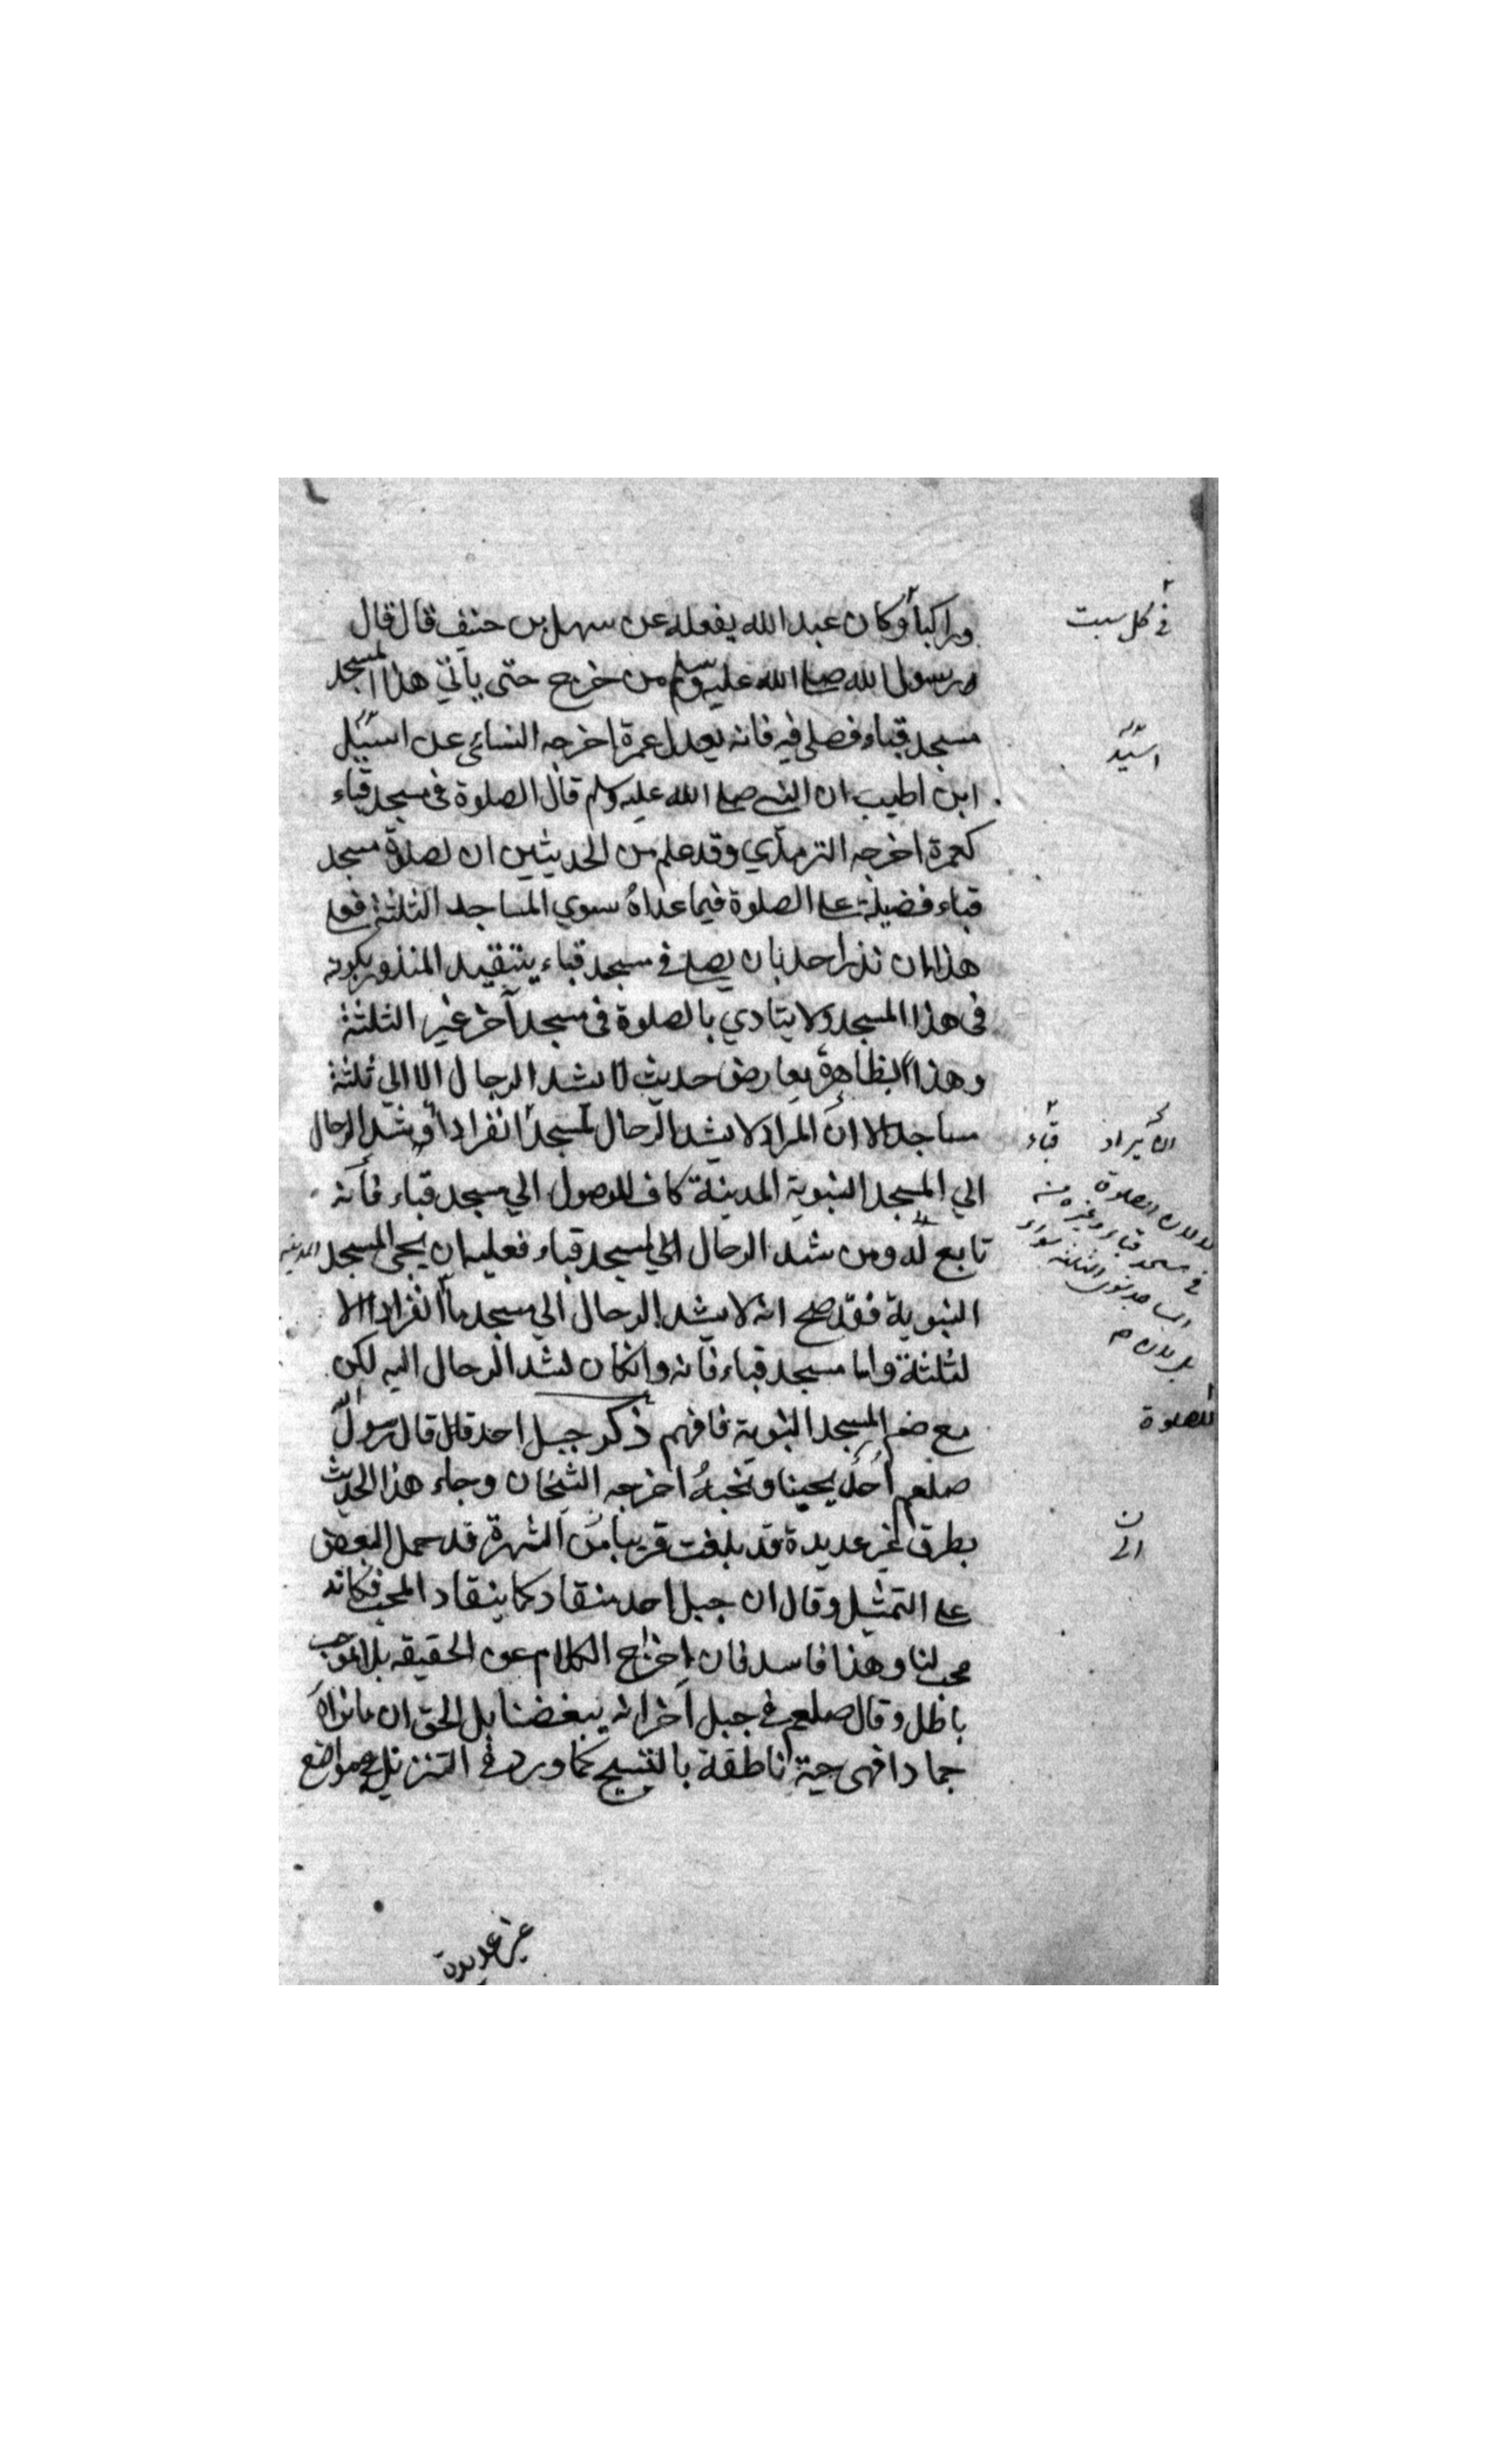 وراكبا وكان عبد الله يفعله عن سهل بن حنيف قال قال
رسول الله صلى الله عليه وسلم من خرج حتى ياتي هذا المسجد
مسجد قباء فصلى فيه فانه يعدل عمرة اخرجه النسائى عن اسيد
ابن اظهير ان النبي صلى الله عليه وسلم قال الصلوة فى مسجد قباء
كعمرة اخرجه الترمذي وقد علم من الحديثين ان لصلوة مسجد
قباء فضيلة على الصلوة فيما عداه سوي المساجد الثلثة فعلى
هذا ان نذر احد بان يصلي في مسجد قباء يتقيد المنذور بكونه
فى هذا المسجد ولا يتادي بالصلوة فى مسجد آخر غير الثلثة
وهذا بظاهره يعارض حديث لا يشد الرحال الا الي ثلثة
مساجد الا ان المراد لا يشد الرحال لمسجد انفرادا وشد الرحال
الي المسجد النبوية المدينة كاف للوصول الي مسجد قباء فانه
تابع له ومن شد الرحال الي مسجد قباء فعليه ان يجئ المسجد المدينة
النبوية فقد صح انه لا يشد الرحال الي مسجد ما انفرادا الا
لثلثة واما مسجد قباء فانه وانكان لشد الرحال اليه لكن
مع ضم المسجد النبوية فافهم ذكر جبل احد قال قال رسول الله
صلعم احد يحبنا ونحبه اخرجه الشيخان وجاء هذا الحديث
بطرق غير عديدة قد بلغت قريبا من الشهرة قد حمل البعض
على التمثيل وقال ان جبل احد منقاد كما ينقاد المحب فكانه
محب لنا وهذا فاسد فان اخراج الكلام عن الحقيقه بلا موجب
باطل وقال صلعم في جبل آخر انه يبغضنا بل الحق ان ما نراه
جمادا فهى حية ناطقة بالتسبيح كما ورد في التنزيل في مواضع
غير عديدة
في كل سبت
اسيد
قباء
لا لان الصلوة
في مسجد قباء وغيره من
المساجد سوى الثلثة سواء
بل لان
للصلوة